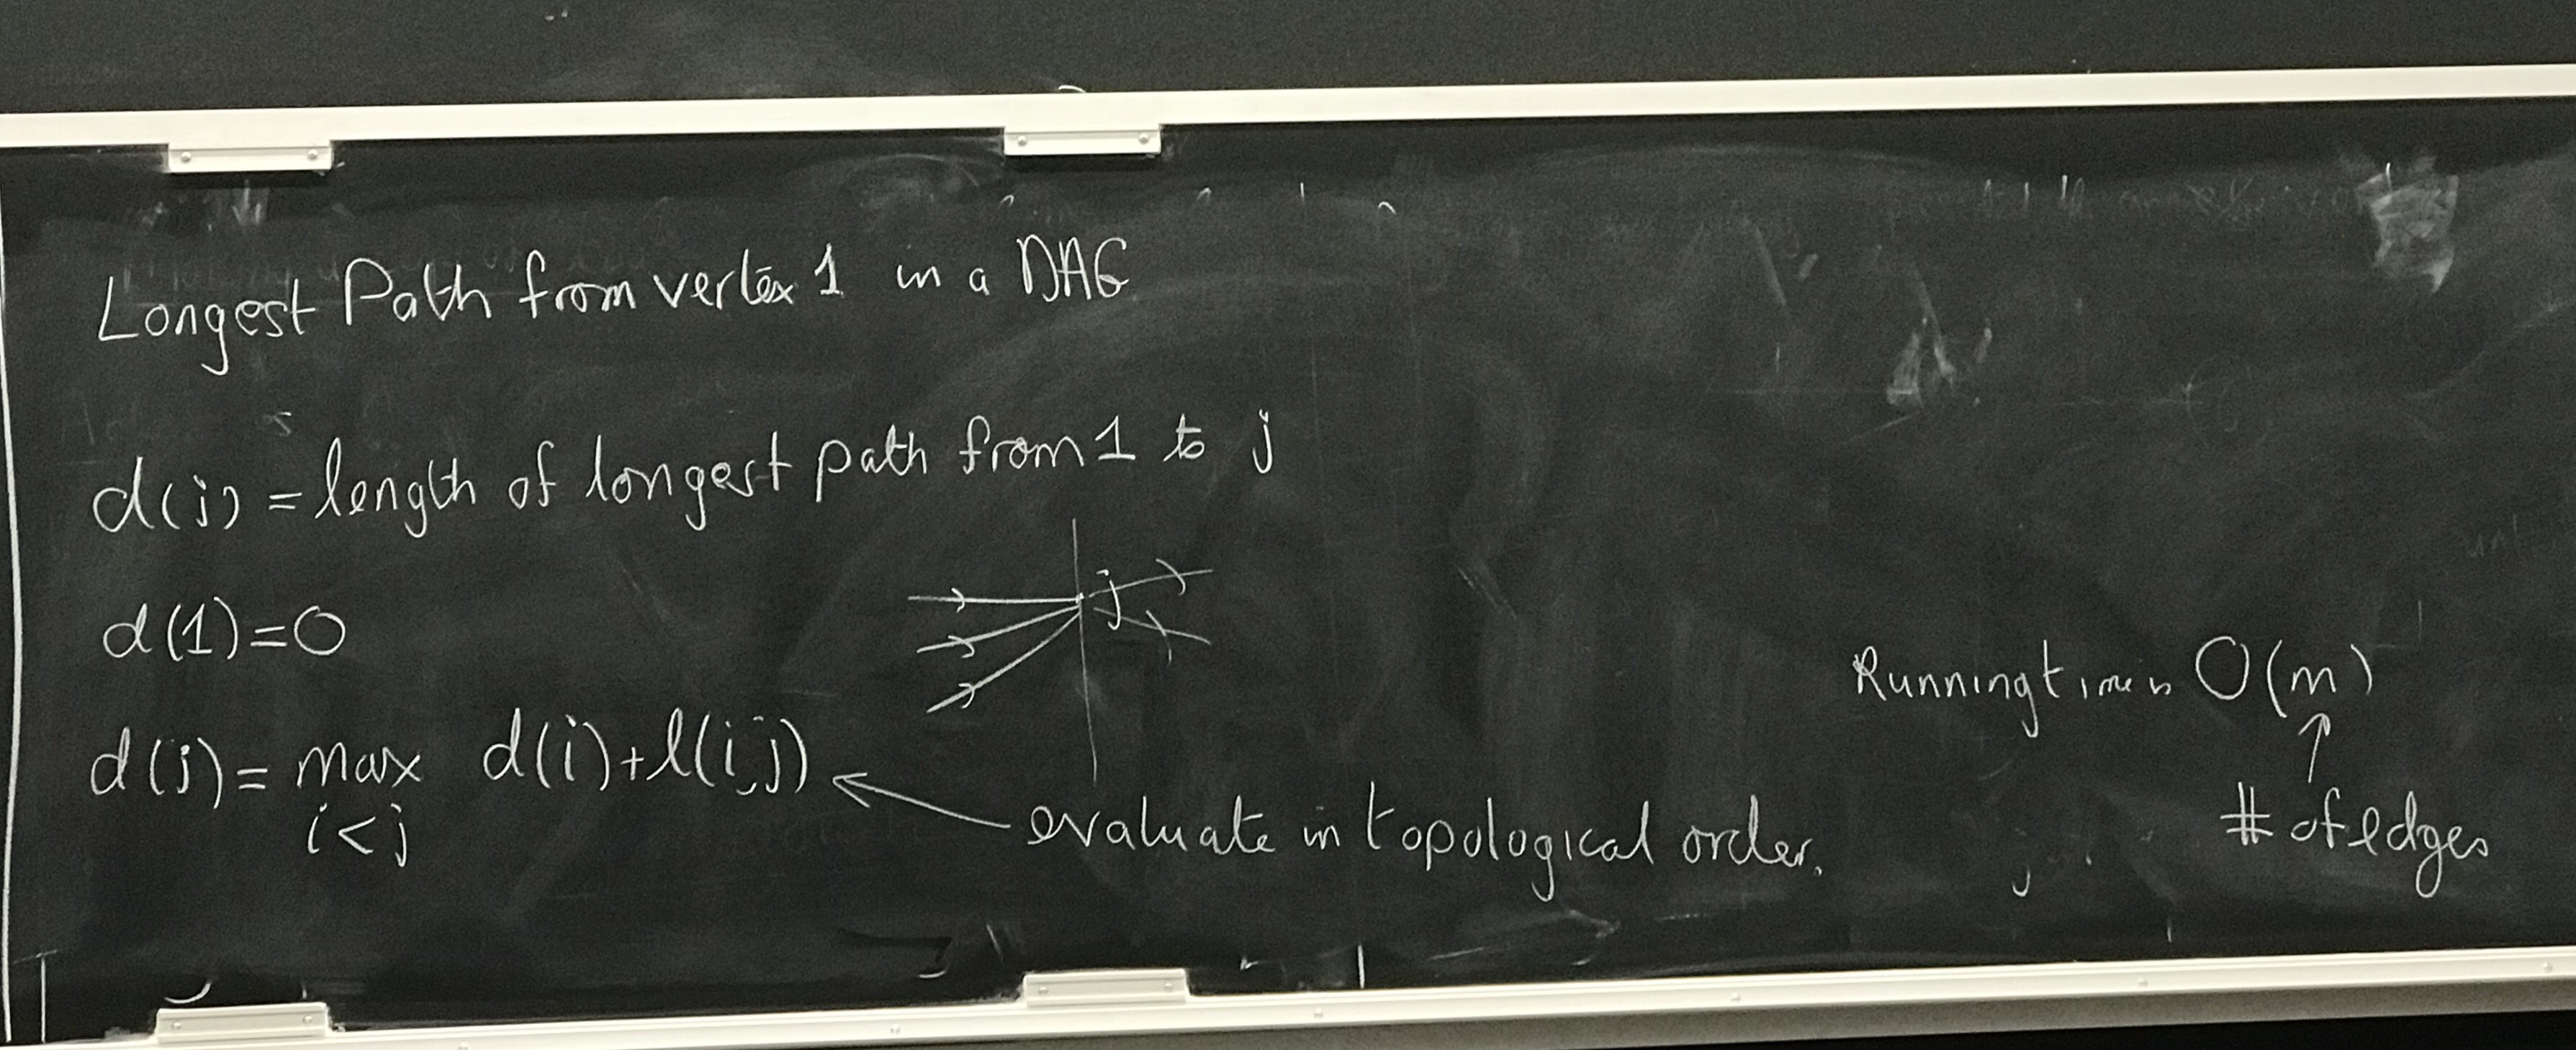 Longest Path from vertex 1 in a DAG
d(j) = length of longest path from 1 to j
j
d(1)=0
d(j) = max d(i)+l(i,j)
i<j
evaluate in topological order.
Running time is O(m)
# of edges